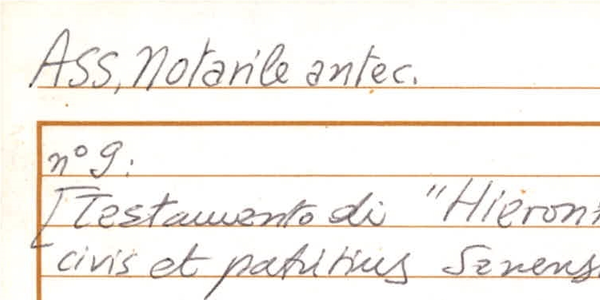 Ass. Notarile antec.
n° 9:
[Testamento di "Hieron
civis et patritius Senens